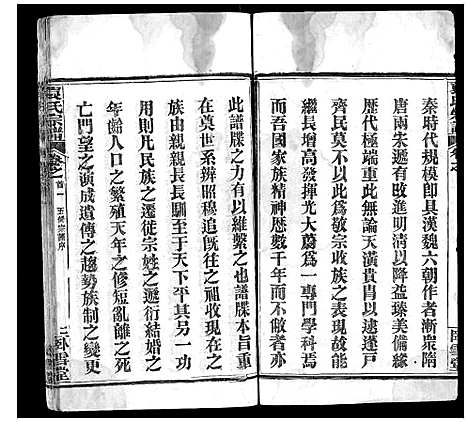 秦時代規模即具漢魏六朝作者漸衆隋
唐兩宋遞有進明清以降益臻美備緣
歷代極端重此無論天潢貴胄以逮邊戶
齊民莫不以此爲敬宗收族之表現故能
繼長增高發揮光大蔚爲一專門學科焉
而吾國家族精神歷數千年而不敝者亦
此譜牒之力有以維繫之也譜牒本旨重
在奠世系辨昭穆追旣往之祖收現在之
族由親親長長馴至于天下平其另一功
用則凡民族之遷徙宗姓之遞衍結婚之
年齡人口之繁殖天年之修短亂離之死
亡門望之演成遺傳之趨勢族制之變更
袁氏宗譜
卷之首一
三
臥雪堂